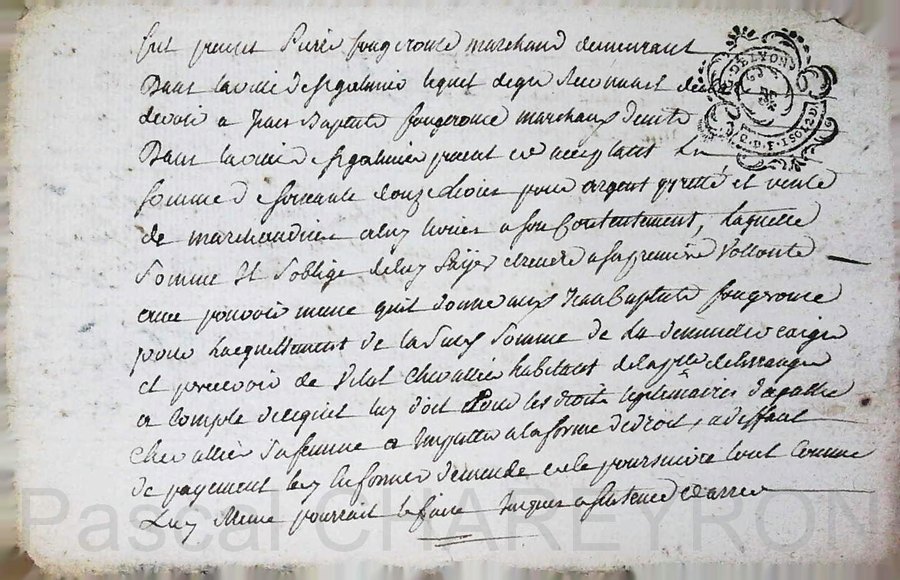 fut present Pierre fougerouse marchand demeurant
Dans la ville de st galmier lequel de gré Reconnait
devoir a Jean Baptiste fougerouse marchand
Dans la ville de st galmier present et acceptant La
Somme de soixante douze Livres pour argent pretté et vente
de marchandise a luy livrée a son Contentement, Laquelle
Somme Il S'oblige de luy payer et rendre a sa premiere Vollonté
avec pouvoir mesme qu'il donne aud Jean Baptiste fougerouse
pour Lacquittement de la Somme de La demander exiger
et percevoir de Vital Chevallier habitant de la psse de
a Compte de ce qu'il luy doit Pour les droits legitimaires d'agathe
Chevallier Sa femme a Imputter a la forme de droit, a deffaut
de payement luy en former demande et le poursuivre tout Comme
Luy Meme pourrait le faire Jusques a sentence et arret
G. DE LYON
D.P.F. 1 SOL 4 D.
Pascal CHAREYRON